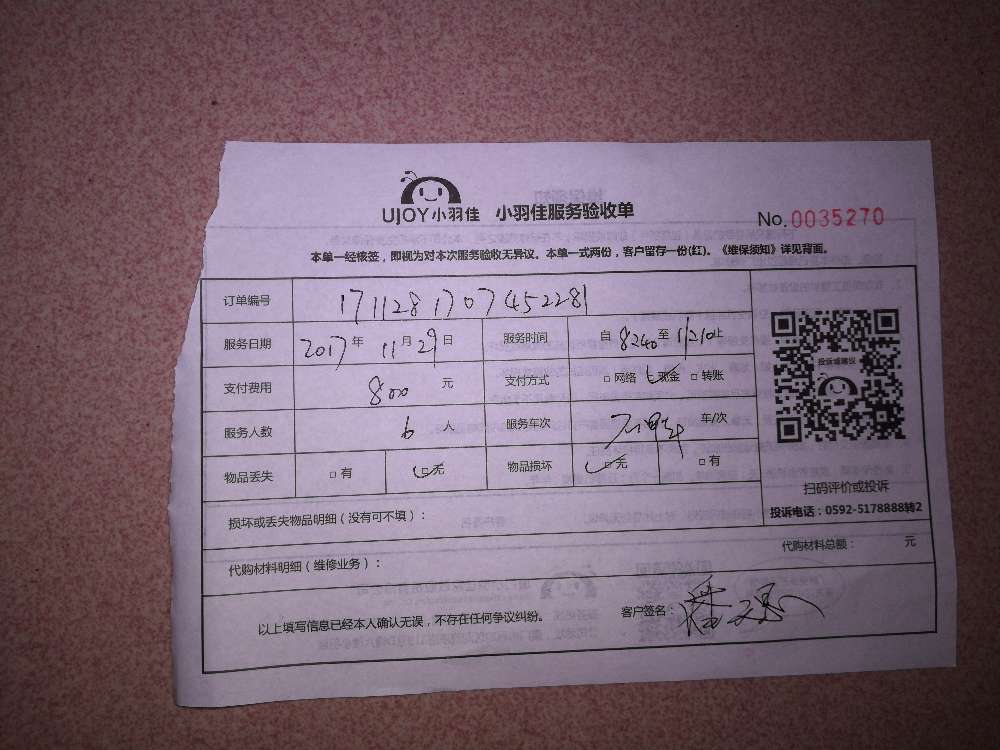 UJOY小羽佳 小羽佳服务验收单 No.0035270
本单一经核签，即视为对本次服务验收无异议。本单一式两份，客户留存一份(红)。《维保须知》详见背面。
订单编号 1711281707452281
服务日期 2017年11月29日 服务时间 自8:40至 止
支付费用 800 元 支付方式 □网络 □现金 □转账
服务人数 6 人 服务车次 车/次
物品丢失 □有 □无 物品损坏 □无 □有
投诉或建议
扫码评价或投诉
投诉电话：0592-5178888转2
损坏或丢失物品明细（没有可不填）：
代购材料明细（维修业务）： 代购材料总额： 元
以上填写信息已经本人确认无误，不存在任何争议纠纷。 客户签名：潘